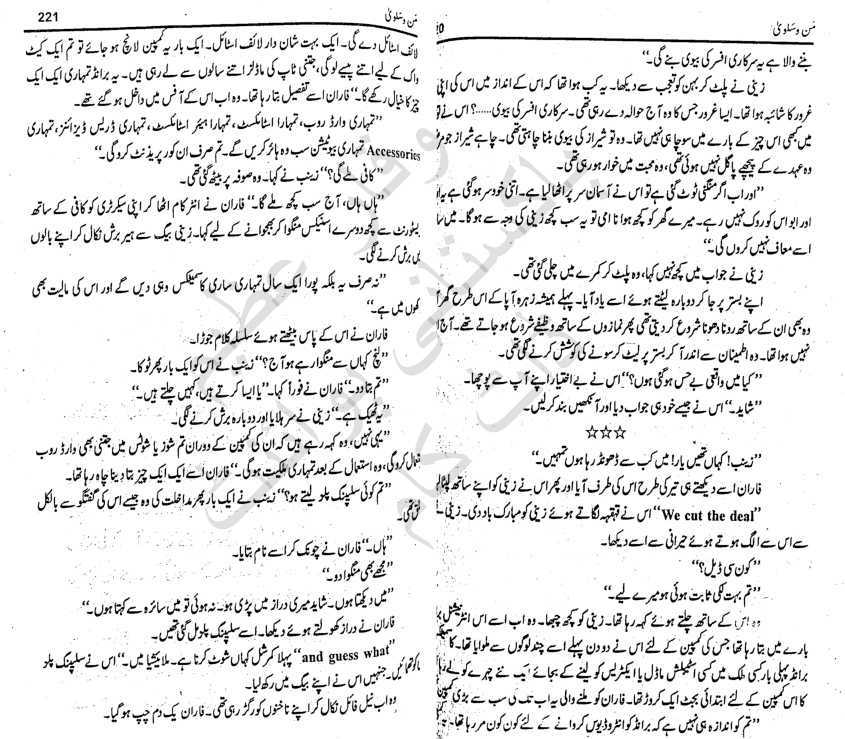 من و سلویٰ
بننے والا ہے یہ سرکاری افسر کی بیوی بنے گی۔“
زینی نے پلٹ کر بہن کو تعجب سے دیکھا۔ یہ کب ہوا تھا کہ اس کے انداز میں اس کی اپنی
غرور کا شائبہ ہوا تھا۔ ایسا غرور جس کا وہ آج حوالہ دے رہی تھی۔ سرکاری افسر کی بیوی......؟ اس نے تو
میں کبھی اس چیز کے بارے میں سوچا ہی نہیں تھا۔ وہ تو شیراز کی بیوی بننا چاہتی تھی۔ چاہے شیراز جو
وہ عہدے کے پیچھے پاگل نہیں ہوئی تھی، وہ محبت میں خوار ہو رہی تھی۔
”اور اب اگر منگنی ٹوٹ گئی ہے تو اس نے آسمان سر پر اٹھا لیا ہے۔ اتنی خودسر ہو گئی ہے یہ
اور ابو اس کو روک نہیں رہے۔ میرے گھر کو کچھ ہوا نا امی تو یہ سب کچھ زینی کی وجہ سے ہو گا۔ میں
اسے معاف نہیں کروں گی۔“
زینی نے جواب میں کچھ نہیں کہا، وہ پلٹ کر کمرے میں چلی گئی تھی۔
اپنے بستر پر جا کر دوبارہ لیٹتے ہوئے اسے یاد آیا۔ پہلے ہمیشہ زہرہ آپا کے اس طرح گھر آ
وہ بھی ان کے ساتھ رونا دھونا شروع کر دیتی تھی پھر نمازوں کے ساتھ وظیفے شروع ہو جاتے تھے۔ آج
نہیں ہوا تھا۔ وہ اطمینان سے اندر آ کر بستر پر لیٹ کر سونے کی کوشش کرنے لگی تھی۔
”کیا میں واقعی بے حس ہو گئی ہوں؟“ اس نے بے اختیار اپنے آپ سے پوچھا۔
”شاید۔“ اس نے جیسے خود ہی جواب دیا اور آنکھیں بند کر لیں۔
☆☆☆
”زینب! کہاں تھیں یار! میں کب سے ڈھونڈ رہا ہوں تمہیں۔“
فاران اسے دیکھتے ہی تیر کی طرح اس کی طرف آیا اور پھر اس نے زینی کو اپنے ساتھ لپٹا
”We cut the deal“ اس نے قہقہہ لگاتے ہوئے زینی کو مبارک باد دی۔ زینی
سے اس سے الگ ہوتے ہوئے حیرانی سے اسے دیکھا۔
”کون سی ڈیل؟“
”تم بہت لکی ثابت ہوئی ہو میرے لیے۔“
وہ اس کے ساتھ چلتے ہوئے کہہ رہا تھا۔ زینی کو کچھ چبھا۔ وہ اب اسے اس انٹرنیشنل
بارے میں بتا رہا تھا جس کی کمپین کے لئے اس نے دو دن پہلے اسے چند لوگوں سے ملوایا تھا۔
برانڈ پہلی بار کسی ملک میں کسی اسٹیبلش ماڈل یا ایکٹریس کو لینے کے بجائے ایک نئے چہرے کو لے رہا
اس کمپین کے لئے ابتدائی بجٹ ایک کروڑ تھا۔ فاران کو ملنے والی یہ اب تک کی سب سے بڑی کمپین
”تم کو اندازہ ہی نہیں ہے کہ برانڈ کو انٹروڈیوس کروانے کے لئے کون کون مر رہا تھا۔
من و سلویٰ
221
لائف اسٹائل دے گی۔ ایک بہت شان دار لائف اسٹائل۔ ایک بار یہ کمپین لانچ ہو جائے تو تم ایک کیٹ
واک کے لیے اتنے پیسے لو گی، جتنی ٹاپ کی ماڈلز اتنے سالوں سے لے رہی ہیں۔ یہ برانڈ تمہاری ایک ایک
چیز کا خیال رکھے گا۔“ فاران اسے تفصیل بتا رہا تھا۔ وہ اب اس کے آفس میں داخل ہو گئے تھے۔
”تمہاری وارڈ روب، تمہارا اسٹائلسٹ، تمہارا ہیئر اسٹائلسٹ، تمہاری ڈریس ڈیزائنر، تمہاری
Accessories تمہاری بیوٹیشن سب وہ ہائر کریں گے۔ تم صرف ان کو ریپریزنٹ کرو گی۔“
”کافی ملے گی؟“ زینب نے کہا۔ وہ صوفہ پر بیٹھ گئی تھی۔
”ہاں ہاں، آج سب کچھ ملے گا۔“ فاران نے انٹر کام اٹھا کر اپنی سیکرٹری کو کافی کے ساتھ
ریسٹورنٹ سے کچھ دوسرے اسنیکس منگوا کر بھجوانے کے لیے کہا۔ زینی بیگ سے ہیر برش نکال کر اپنے بالوں
میں برش کرنے لگی۔
”نہ صرف یہ بلکہ پورا ایک سال تمہاری ساری کاسمیٹکس وہی دیں گے اور اس کی مالیت بھی
لاکھوں میں ہے۔“
فاران نے اس کے پاس بیٹھتے ہوئے سلسلہ کلام جوڑا۔
”لنچ کہاں سے منگوا رہے ہو آج؟“ زینب نے اس کو ایک بار پھر ٹوکا۔
”تم بتا دو۔“ فاران نے فوراً کہا۔ ”یا ایسا کرتے ہیں، کہیں چلتے ہیں۔“
”یہ ٹھیک ہے۔“ زینی نے سر ہلایا اور دوبارہ برش کرنے لگی۔
”یہی نہیں، وہ کہہ رہے ہیں کہ ان کی کمپین کے دوران تم شوز یا شوٹس میں جتنی بھی وارڈ روب
استعمال کرو گی، وہ استعمال کے بعد تمہاری ملکیت ہو گی۔“ فاران اسے ایک ایک چیز بتا دینا چاہ رہا تھا۔
”تم کوئی سلیپنگ پلو لیتے ہو؟“ زینب نے ایک بار پھر مداخلت کی وہ جیسے اس کی گفتگو سے بالکل
تھی۔
”ہاں۔“ فاران نے چونک کر اسے نام بتایا۔
”مجھے بھی منگوا دو۔“
”میں دیکھتا ہوں۔ شاید میری دراز میں پڑی ہو۔ نہ ہوئی تو میں سائرہ سے کہتا ہوں۔“
فاران نے دراز کھولتے ہوئے دیکھا۔ اسے سلیپنگ پلو مل گئی تھیں۔
”and guess what“ پہلا کمرشل کہاں شوٹ کرنا ہے۔ ملائیشیا میں۔“ اس نے سلیپنگ پلو
تھمائیں۔ جنہیں اس نے اپنے بیگ میں رکھ لیا۔
وہ اب نیل فائل نکال کر اپنے ناخنوں کو رگڑ رہی تھی۔ فاران یک دم چپ ہو گیا۔